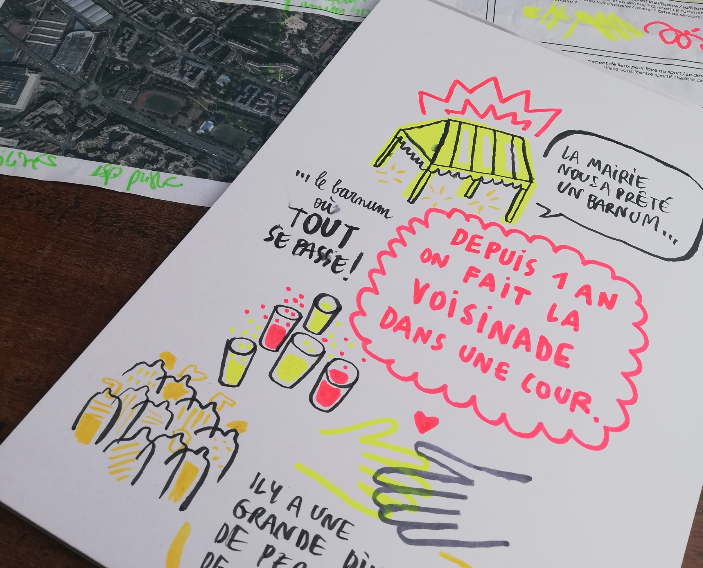 esp public
LA MAIRIE
NOUS A PRÊTÉ
UN BARNUM...
... le barnum
où
TOUT
SE PASSE!
DEPUIS 1 AN
ON FAIT LA
VOISINADE
DANS UNE COUR.
IL Y A UNE
GRANDE
DE
DE